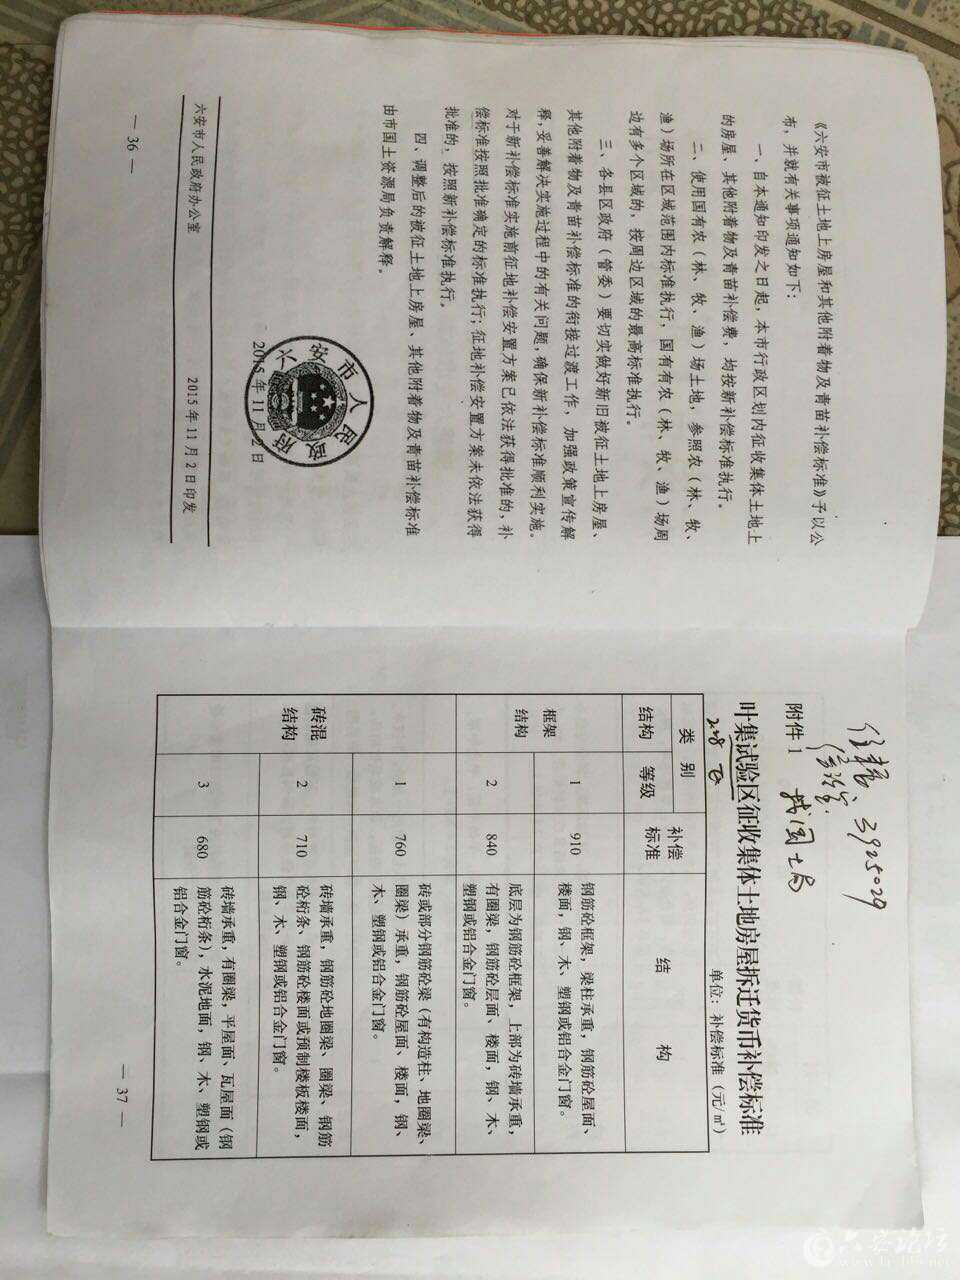 《六安市被征土地上房屋和其他附着物及青苗补偿标准》予以公
布，并就有关事项通知如下：
一、自本通知印发之日起，本市行政区划内征收集体土地上
的房屋、其他附着物及青苗补偿费，均按新补偿标准执行。
二、使用国有农（林、牧、渔）场土地，参照农（林、牧、
渔）场所在区域范围内标准执行，国有有农（林、牧、渔）场周
边有多个区域的，按周边区域的最高标准执行。
三、各县区政府（管委）要切实做好新旧被征土地上房屋、
其他附着物及青苗补偿标准的衔接过渡工作，加强政策宣传解
释，妥善解决实施过程中的有关问题，确保新补偿标准顺利实施。
对于新补偿标准实施前征地补偿安置方案已依法获得批准的，补
偿标准按照批准确定的标准执行；征地补偿安置方案未依法获得
批准的，按照新补偿标准执行。
四、调整后的被征土地上房屋、其他附着物及青苗补偿标准
由市国土资源局负责解释。
六安市人民政府
2015年11月2日
六安市人民政府办公室 2015年11月2日印发
— 36 —
3925029
国土局
附件1
叶集试验区征收集体土地房屋拆迁货币补偿标准
单位：补偿标准（元/㎡）
类别 补偿标准 结构
结构 等级
框架结构 1 910 钢筋砼框架，梁柱承重，钢筋砼屋面、
楼面，钢、木、塑钢或铝合金门窗。
2 840 底层为钢筋砼框架，上部为砖墙承重，
有圈梁，钢筋砼层面、楼面，钢、木、
塑钢或铝合金门窗。
砖混结构 1 760 砖或部分钢筋砼梁（有构造柱、地圈梁、
圈梁）承重，钢筋砼屋面、楼面，钢、
木、塑钢或铝合金门窗。
2 710 砖墙承重，钢筋砼地圈梁、圈梁、钢筋
砼桁条、钢筋砼楼面或预制楼板楼面，
钢、木、塑钢或铝合金门窗。
3 680 砖墙承重，有圈梁，平屋面、瓦屋面（钢
筋砼桁条），水泥地面，钢、木、塑钢或
铝合金门窗。
— 37 —
六安论坛